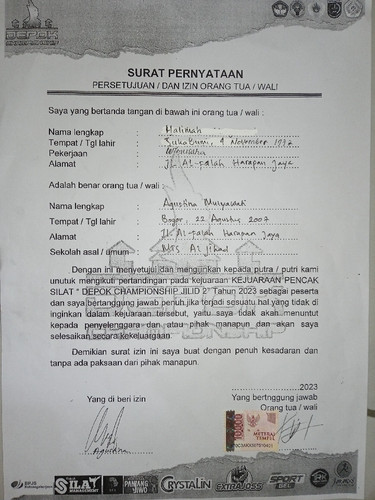 DEPOK
CHAMPIONSHIP
SURAT PERNYATAAN
PERSETUJUAN / DAN IZIN ORANG TUA / WALI
Saya yang bertanda tangan di bawah ini orang tua / wali :
Nama lengkap : Halimah
Tempat / Tgl lahir : Sukabumi, 9 November 1982
Pekerjaan : Wirausaha
Alamat : Jl. Al-falah Harapan Jaya
Adalah benar orang tua / wali :
Nama lengkap : Agustina Mulyawati
Tempat / Tgl lahir : Bogor, 22 Agustus 2007
Alamat : Jl. Al-falah Harapan Jaya
Sekolah asal / umum : MTS Al jihad
Dengan ini menyetujui dan mengijinkan kepada putra / putri kami
unutuk mengikuti pertandingan pada kejuaraan KEJUARAAN PENCAK
SILAT " DEPOK CHAMPIONSHIP JILID 2" Tahun 2023 sebagai peserta
dan saya bertanggung jawab penuh jika terjadi sesuatu hal yang tidak di
inginkan dalam kejuaraan tersebut, yaitu saya tidak akan menuntut
kepada penyelenggara dan atau pihak manapun dan akan saya
selesaikan secara kekeluargaan.
Demikian surat izin ini saya buat dengan penuh kesadaran dan
tanpa ada paksaan dari pihak manapun.
2023
Yang di beri izin
Yang bertnggung jawab
Orang tua / wali
10000
METERAI
TEMPEL
Agustina
BPJS
SILAT
MANAGEMENT
PANJANG
JIWO
CRYSTALIN
EXTRA JOSS
SPORT